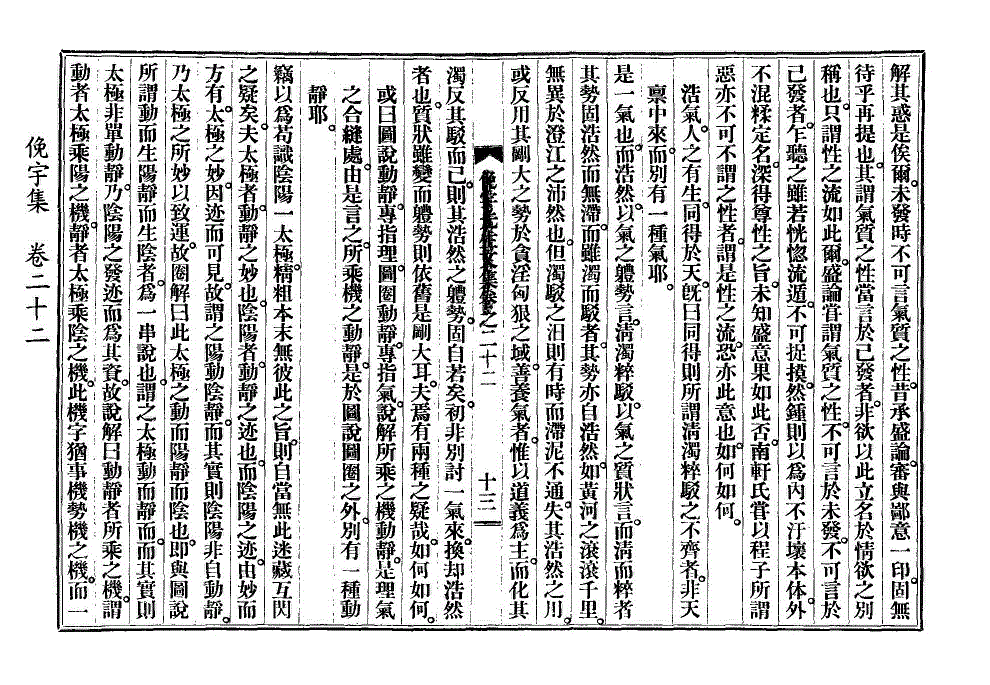 解其惑是俟爾。未發時不可言氣質之性。昔承盛論。審與鄙意一印。固無
待乎再提也。其謂氣質之性當言於已發者。非欲以此立名於情欲之別
稱也。只謂性之流如此爾。盛論甞謂氣質之性。不可言於未發。不可言於
已發者。乍聽之雖若恍惚流遁。不可捉摸。然鍾則以爲內不汙壞本体。外
不混糅定名。深得尊性之旨。未知盛意果如此否。南軒氏甞以程子所謂
惡亦不可不謂之性者。謂是性之流。恐亦此意也。如何如何。
浩氣。人之有生。同得於天。旣曰同得則所謂淸濁粹駁之不齊者。非天
禀中來。而別有一種氣耶。
是一氣也。而浩然。以氣之軆勢言。淸濁粹駁。以氣之質狀言。而淸而粹者
其勢固浩然而無滯。而雖濁而駁者。其勢亦自浩然。如黃河之滾滾千里。
無異於澄江之沛然也。但濁駁之汨則有時而滯泥不通。失其浩然之用。
或反用其剛大之勢於貪淫匈狠之域。善養氣者。惟以道義爲主。而化其
俛宇先生文集卷之二十二 十三
濁反其駁而已。則其浩然之軆勢。固自若矣。初非別討一氣來。換却浩然
者也。質狀雖變而軆勢則依舊是剛大耳。夫焉有兩種之疑哉。如何如何。
或曰圖說動靜。專指理。圖圈動靜。專指氣。說解所乘之機動靜。是理氣
之合縫處。由是言之。所乘機之動靜。是於圖說圖圈之外。別有一種動
靜耶。
竊以爲苟識陰陽一太極。精粗本末無彼此之旨。則自當無此迷藏互閃
之疑矣。夫太極者。動靜之妙也。陰陽者。動靜之迹也。而陰陽之迹。由妙而
方有。太極之妙。因迹而可見。故謂之陽動陰靜。而其實則陰陽非自動靜。
乃太極之所妙以致運。故圈解曰此太極之動而陽靜而陰也。卽與圖說
所謂動而生陽靜而生陰者。爲一串說也。謂之太極動而靜而。而其實則
太極非單動靜。乃陰陽之發迹而爲其資。故說解曰動靜者所乘之機。謂
動者太極乘陽之機。靜者太極乘陰之機。此機字猶事機勢機之機。而一
俛宇集 卷二十二